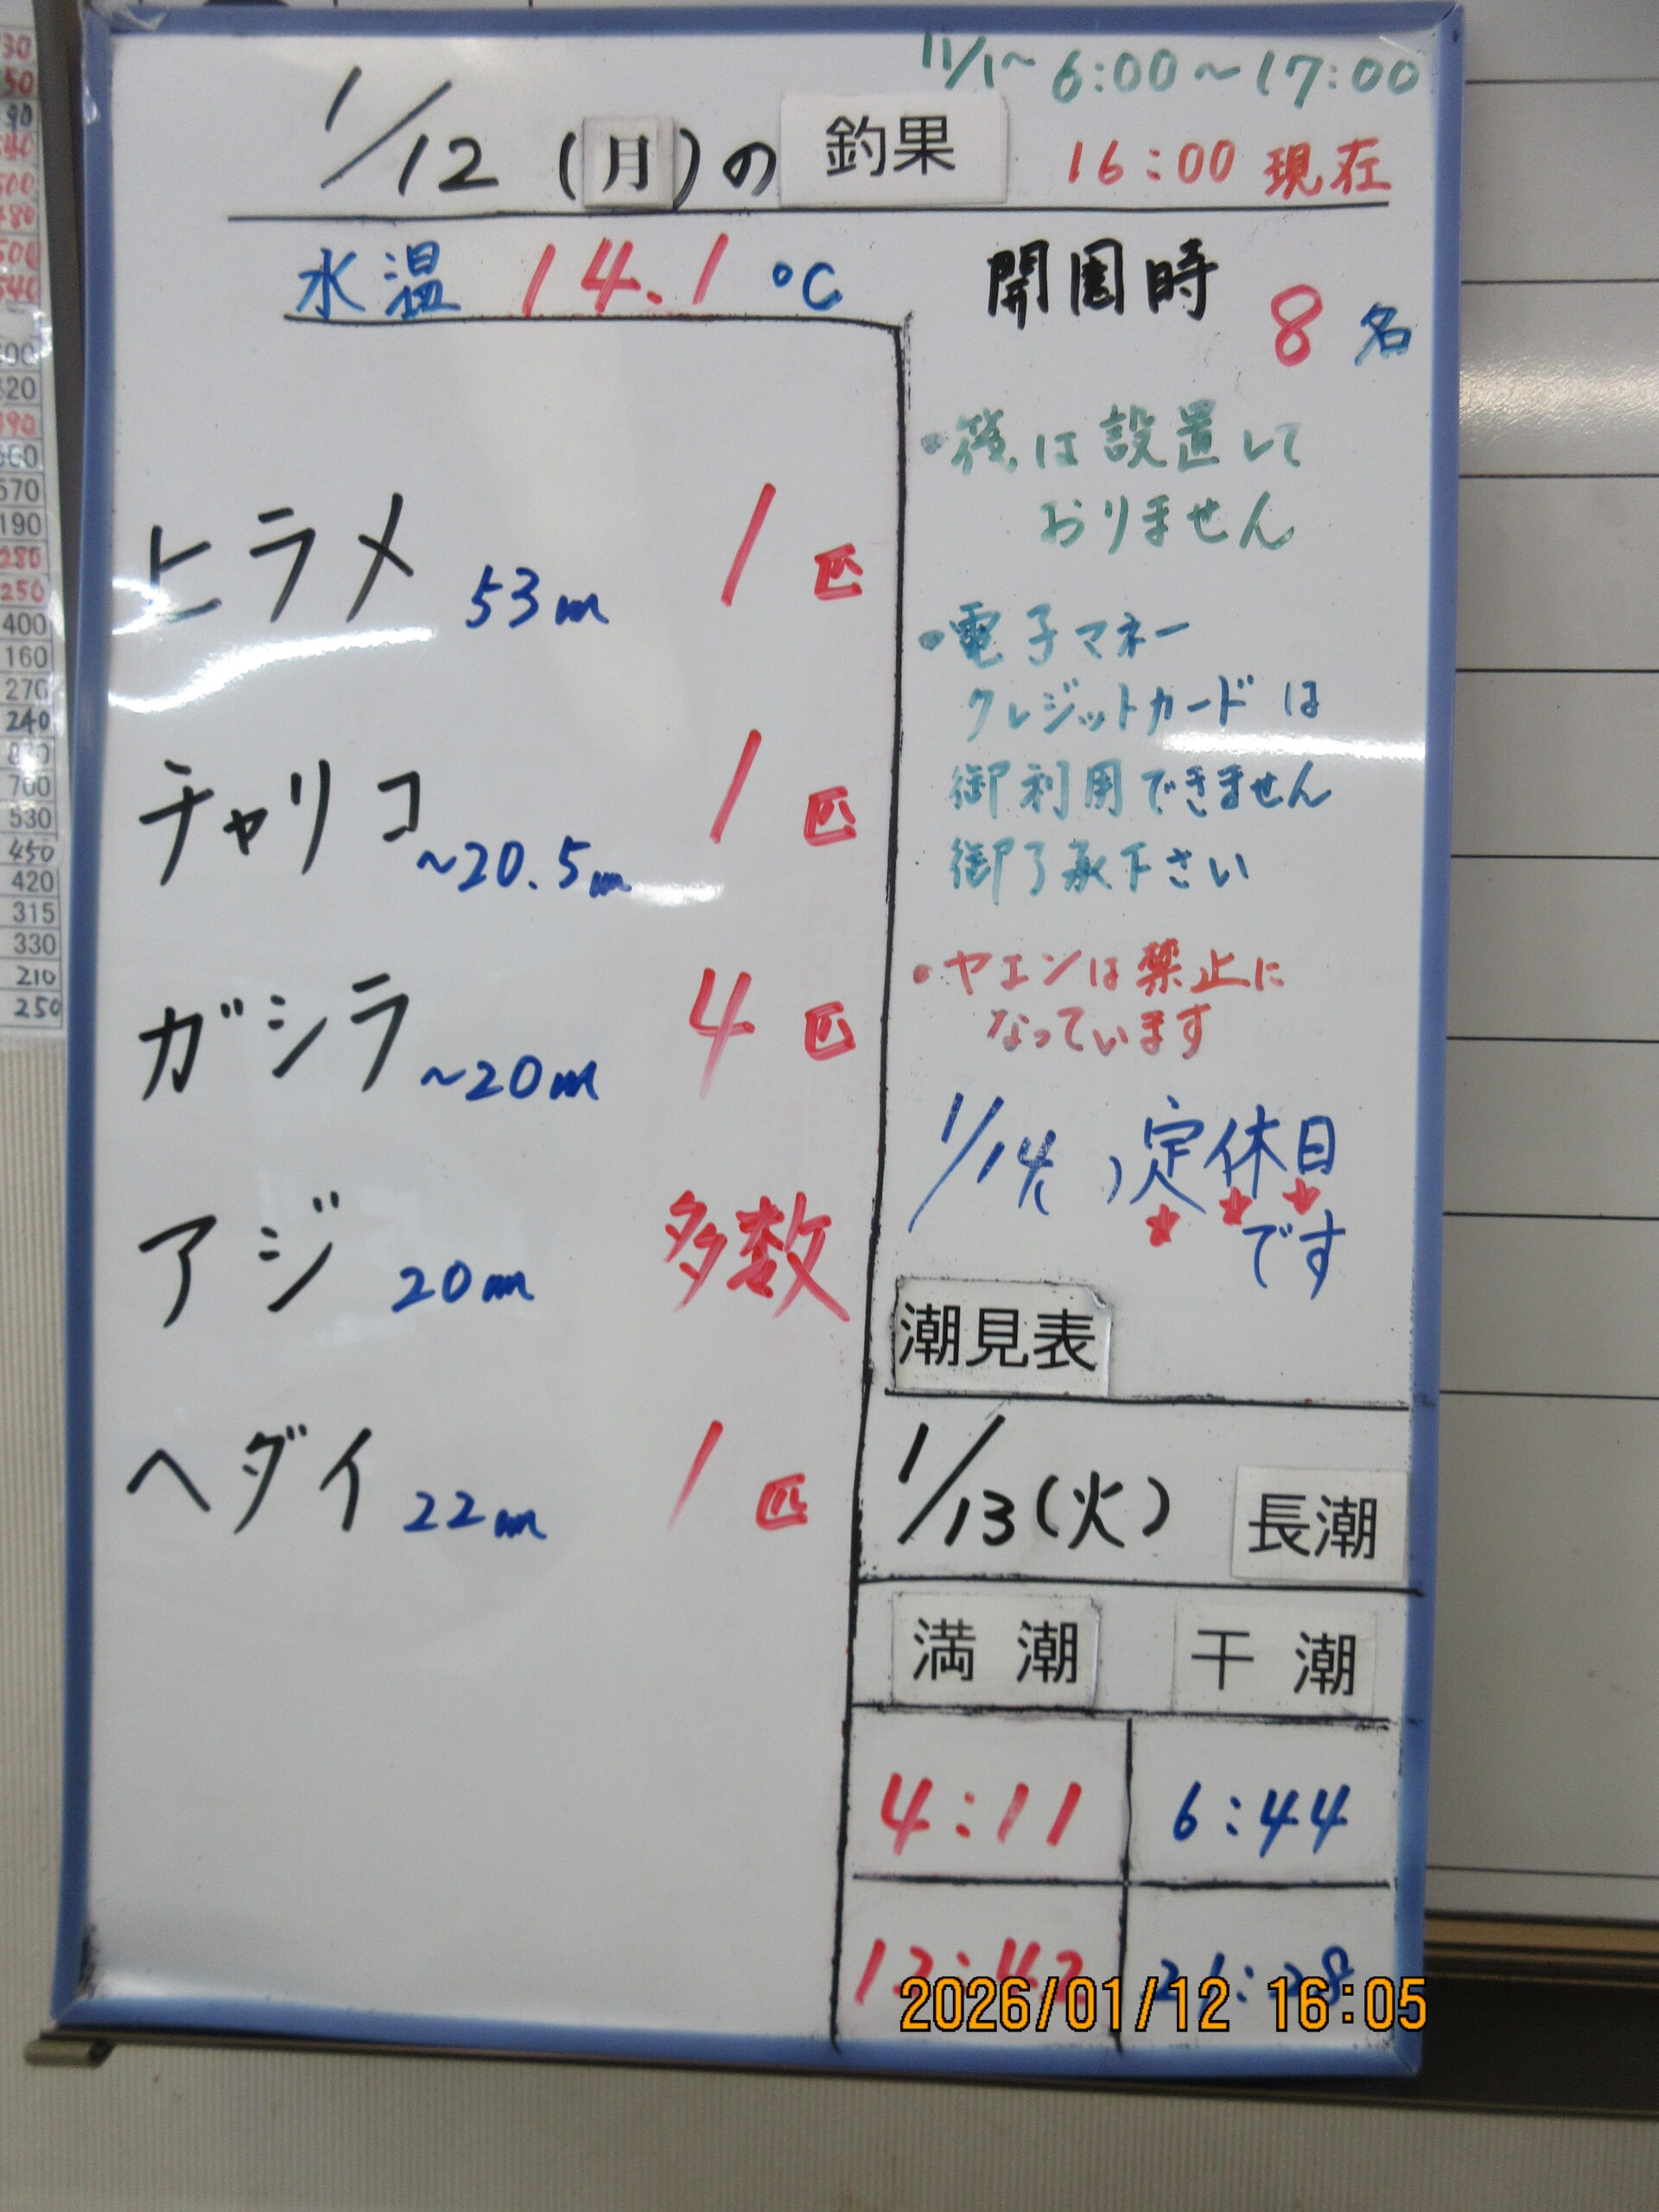 11/1～ 6:00～17:00
1/12 (月)の 釣果 16:00 現在
水温 14.1 ℃
開園時 8 名
ヒラメ 53㎝ 1 匹
チャリコ ～20.5㎝ 1 匹
ガシラ ～20㎝ 4 匹
アジ 20㎝ 多数
ヘダイ 22㎝ 1 匹
・ は設置して
おりません
・電子マネー
クレジットカード は
御利用できません
御了承下さい
・ヤエンは禁止に
なっています
1/14 定休日
です
潮見表
1/13(火) 長潮
満潮 干潮
4:11 6:44
2026/01/12 16:05
30
50
90
540
500
480
500
540
400
160
270
240
700
530
450
420
315
330
210
250